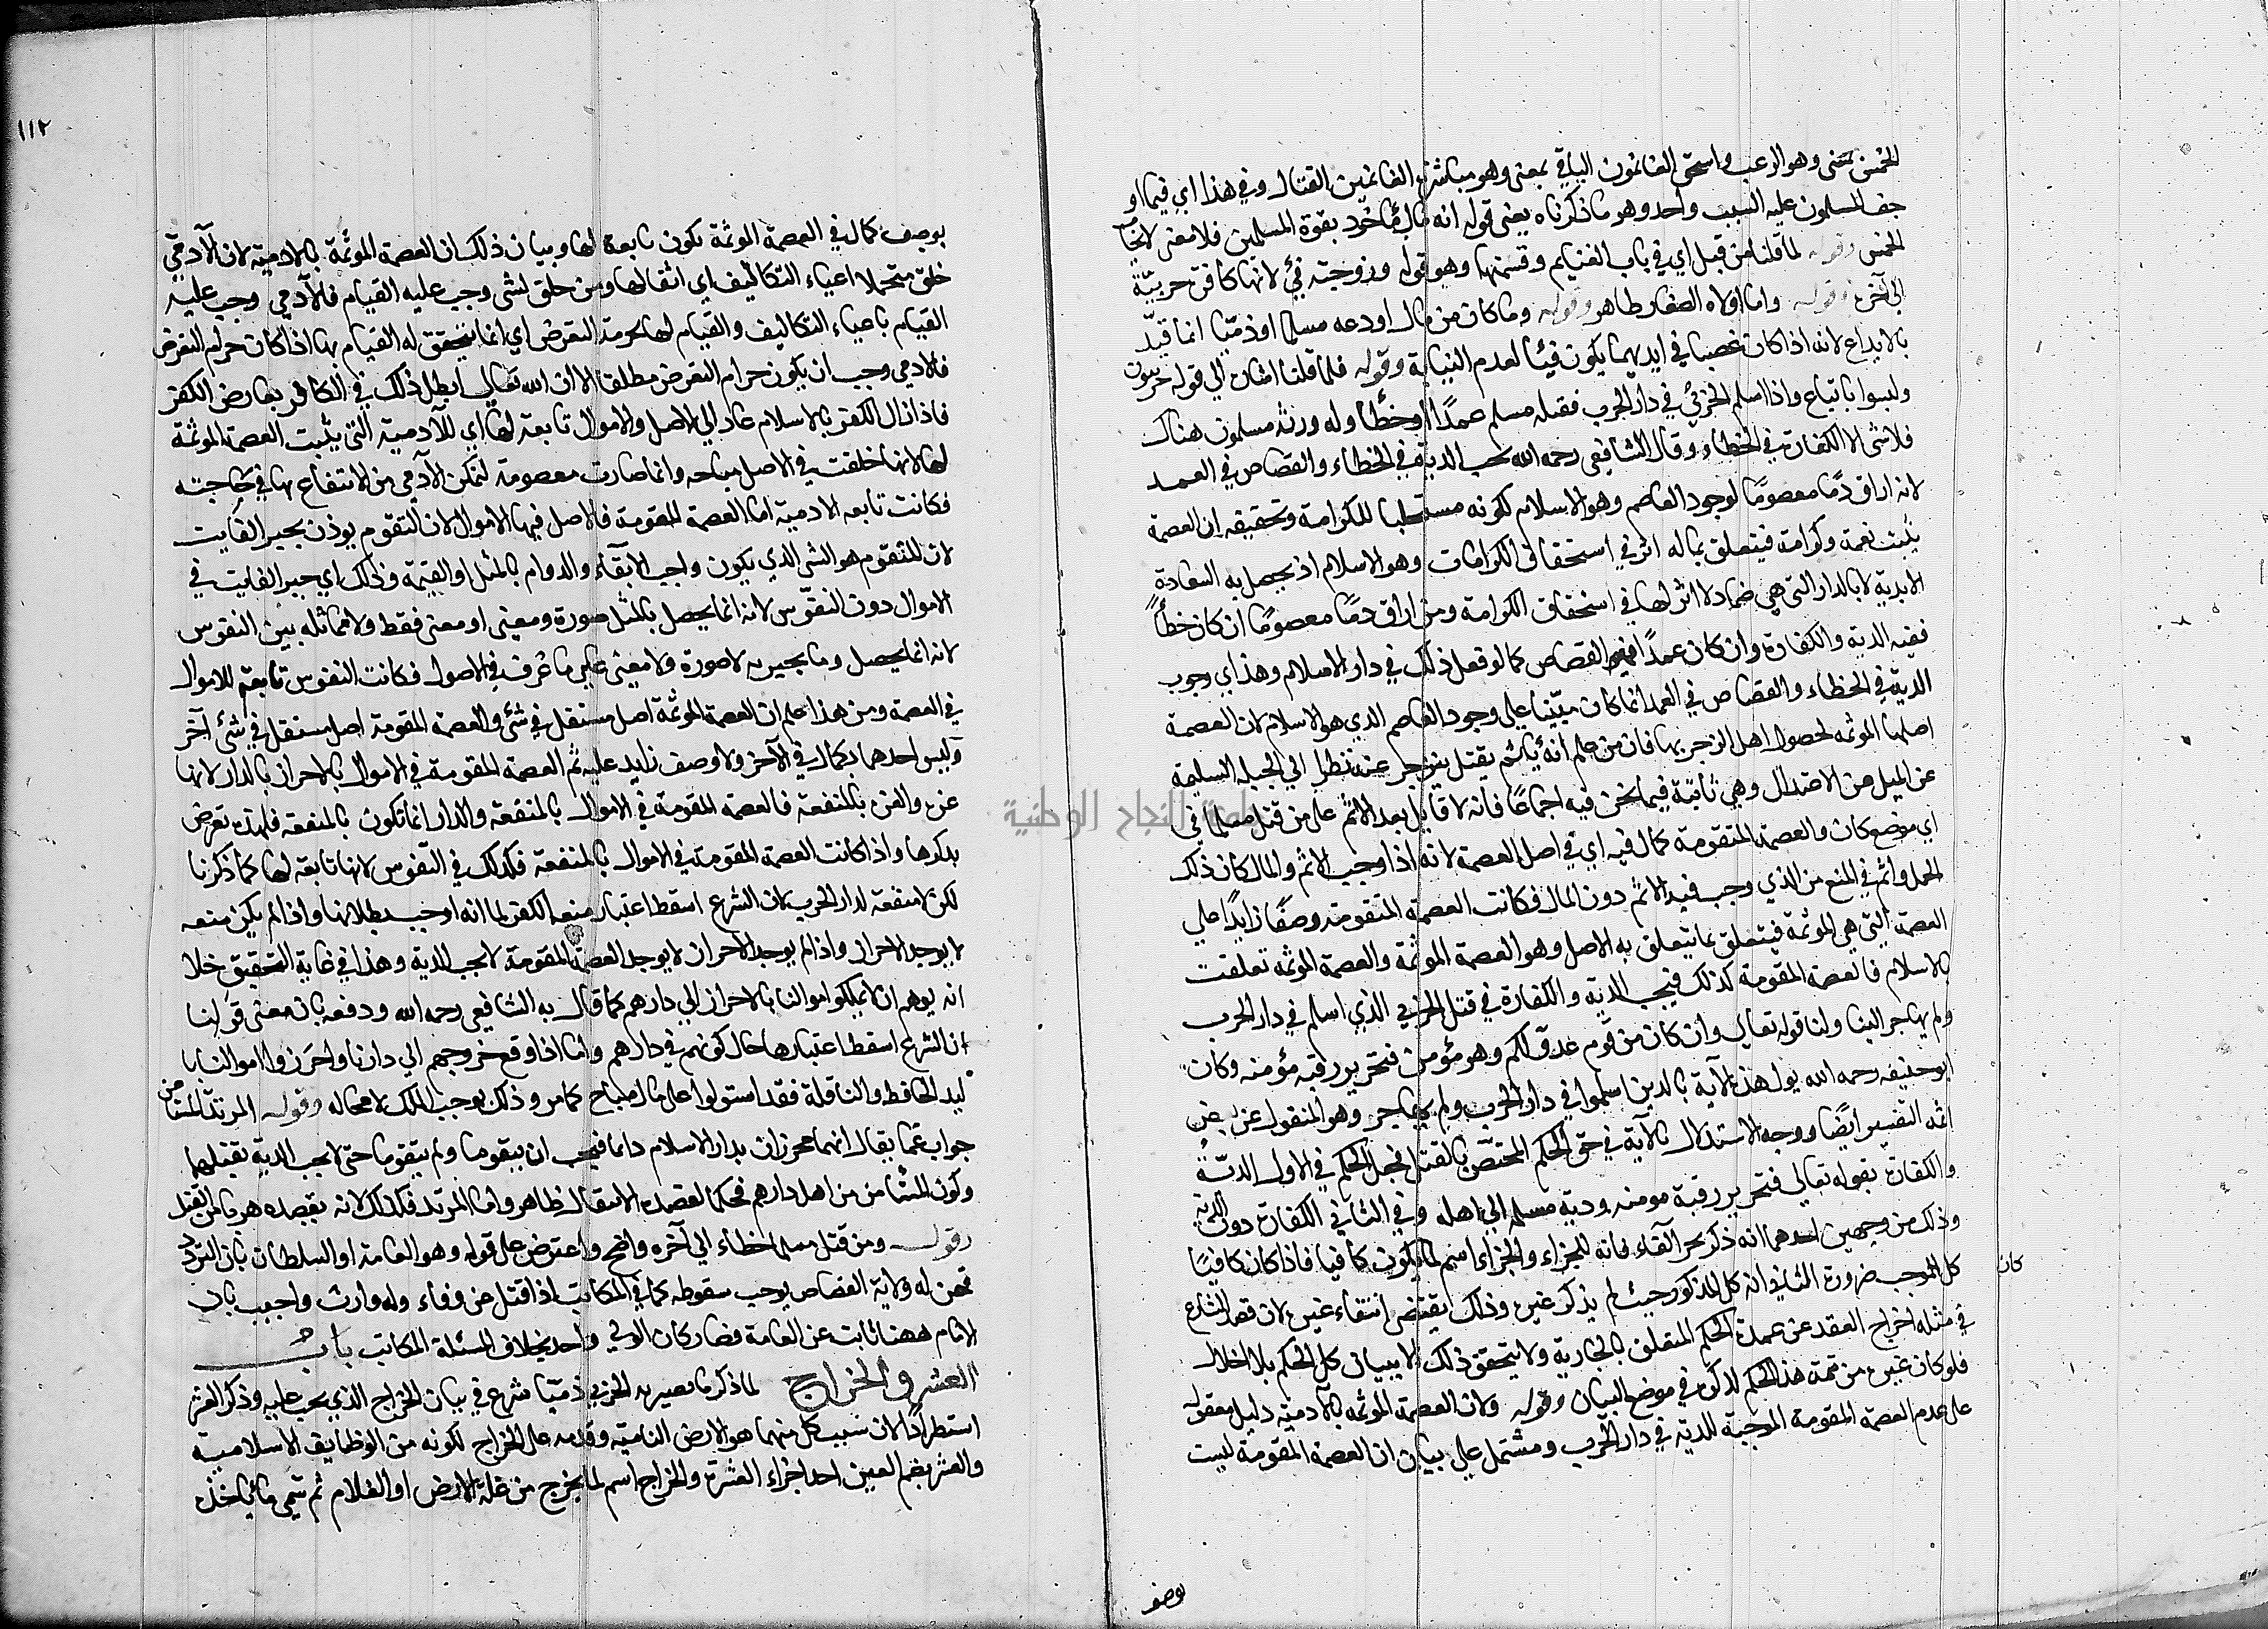 الخمس بمعنى وهو الرعب واستحق الغانمون الباقي بمعنى وهو مباشرة الغانمين القتال وفي هذا اي فيما او
جف المسلمون عليه السبب واحد وهو ما ذكرناه يعني قوله انه مال مأخوذ بقوة المسلمين فلا معنى لايجاب
الخمس وقوله لما قلنا من قبل اي في باب الغنايم وقسمتها وهو قوله وزوجته فئ لانها كافرة حربيّة
الى آخره وقوله واما اولاده الصغار ظاهر وقوله وما كان من مال اودعه مسلما او ذميّا انما قيّد
بالايداع لانه اذا كان غصبا في ايديهما يكون فيئا لعدم النيابة وقوله فلما قلنا اشارة الى قوله حربيون
وليسوا باتباع واذا اسلم الحربي في دار الحرب فقتله مسلم عمدًا او خطأ وله ورثة مسلمون هناك
فلا شئ الا الكفارة في الخطاء وقال الشافعي رحمه الله تجب الدية في الخطاء والقصاص في العمد
لانه اراق دمًا معصومًا لوجود العاصم وهو الاسلام لكونه مستجلبا للكرامة وتحقيقه ان العصمة
يثبت نعمة وكرامة فيتعلق بما له اثر في استحقاق الكرامات وهو الاسلام اذ يحصل به السعادة
الابدية لا بالدار التي هي جماد لا اثر لها في استحقاق الكرامة ومن اراق دمًا معصومًا ان كان خطأً
ففيه الدية والكفارة وان كان عمدًا ففيه القصاص كما لو فعل ذلك في دار الاسلام وهذا اي وجوب
الدية في الخطاء والقصاص في العمد انما كان مبنيا على وجود العاصم الذي هو الاسلام لان العصمة
اصلها الموثمة لحصول اصل الزجر بها فان من علم انه يأثم بقتل ينزجر عنه نظرا الى الجبلة السليمة
عن الميل من الاعتدال وهي ثابتة فيما نحن فيه اجماعًا فانه لا قايل بعدم الاثم على من قتل مسلما في
اي موضع كان والعصمة المتقومة كمال فيه اي في اصل العصمة لانه اذا وجب الاثم والمال كان ذلك
اكمل واتم في المنع من الذي وجب فيه الاثم دون المال فكانت العصمة المتقومة وصفًا زايدًا على
العصمة التي هي الموثمة فيتعلق بما يتعلق به الاصل وهو العصمة الموثمة والعصمة الموثمة تعلقت
بالاسلام فالعصمة المقومة كذلك فيجب الدية والكفارة في قتل الحربي الذي اسلم في دار الحرب
ولم يهاجر الينا ولنا قوله تعالى وان كان من قوم عدو لكم وهو مؤمن فتحرير رقبة مؤمنه وكان
ابو حنيفه رحمه الله يول هذه الآية بالذين اسلموا في دار الحرب ولم يهاجر وهو المنقول عن بعض
ائمه التفسير ايضًا ووجه الاستدلال بالآية في حق الحكم المختص بالقتل فجعل الحكم في الاول الديّة
والكفارة بقوله تعالى فتحرير رقبة مومنه ودية مسلمه الى اهله وفي الثاني الكفارة دون الدية
وذلك من وجهين احدهما انه ذكر بحرف الفاء فانه للجزاء والجزاء اسم لما يكون كافيا فاذا كان كافيًا
كان
كل الموجب ضرورة الثاني انه كل المذكور حيث لم يذكر غيره وذلك يقتضي انتفاء غيره لان قصد الشارع
في مثله اخراج العقد عن عهدة الحكم المتعلق بالجارية ولا يتحقق ذلك الا ببيان كل الحكم بلا اخلال
فلو كان غيره من تتمة هذا الحكم لذكره في موضع البيان وقوله ولان العصمة الموثمة بالآدمية دليل معقول
على عدم العصمة المقومة الموجبة للدية في دار الحرب ومشتمل على بيان ان العصمة المقومة ليست
بوصف
١١٢
بوصف كمال في العصمة الموثمة تكون تابعة لها وبيان ذلك ان العصمة الموثمة بالادمية لان الآدمي
خلق متحملا اعباء التكاليف اي اثقالها ومن خلق لشئ وجب عليه القيام فالآدمي وجب عليه
القيام باعباء التكاليف والقيام لها بحرمة التعرض اي انما يتحقق له القيام بها اذا كان حرام التعرض
فالادمي وجب ان يكون حرام التعرض مطلقا الا ان الله تعالى ابطل ذلك في الكافر بعارض الكفر
فاذا زال الكفر بالاسلام عاد الى الاصل والاموال تابعة لها اي للآدمية التي يثبت العصمة الموثمة
لها لانها خلقت في الاصل مباحه وانما صارت معصومة لتمكن الآدمي من الانتفاع بها في حاجته
فكانت تابعه الادميّة اما العصمة المقومة فالاصل فيها الاموال لان التقوم يوذن بجبر الفايت
لان المتقوم هو الشئ الذي يكون واجب الابقاء والدوام بالمثل او القيمة وذلك اي جبر الفايت في
الاموال دون النفوس لانه انما يحصل بالمثل صورة ومعنى او معنى فقط ولا مماثله بين النفوس
لانه انما يحصل وما يجبر به لا صورة ولا معنى على ما عرف في الاصول فكانت النفوس تابعة للاموال
في العصمة ومن هذا علم ان العصمة الموثمة اصل مستقل في شئ والعصمة المقومة اصل مستقل في شئ آخر
وليس احدهما بكمال في الآخر ولا وصف زايد عليه ثم العصمة المقومة في الاموال بالاحراز بالدار لانها
عزه والعزة بالمنفعة فالعصمة المقومة في الاموال بالمنفعة والدار انما تكون بالمنفعة فلهذا تعرض
بذكرها واذا كانت العصمة المقومة في الاموال بالمنفعة فكذلك في النفوس لانها تابعة لها كما ذكرنا
لكن لا منفعة لدار الحرب لان الشرع اسقط اعتبار منعه الكفر لما انه اوجب بطلانها واذا لم يكن منعه
لا يوجد الاحراز واذا لم يوجد الاحراز لا يوجد العصمة المقومة لا يجب الدية وهذا في غاية التحقيق خلا
انه يوهم ان لا يملكوا اموالنا بالاحراز الى دارهم كما قال به الشافعي رحمه الله ودفعه بان معنى قولنا
ان الشرع اسقط اعتبارها حال كونهم في دارهم واما اذا وقع خروجهم الى دارنا واحرزوا اموالنا بالـ
ليد الحافظ والناقلة فقد استولوا على مال مباح كما مر وذلك يوجب الملك لا محاله وقوله المرتد المستامن
جواب عما يقال انهما محرزان بدار الاسلام دايما فيجب ان يتقوما ولم يتقوما حتى لا يجب الدية بقتلهما
وكون المستامن من اهل دارهم حكما لقصده الانتقال ظاهر واما المرتد فكذلك لانه بقصده هو بامن القتل
وقوله ومن قتل مسلما خطاء الى آخره واضح واعترض على قوله وهو العامة او السلطان بان التردد
فمن له ولاية القصاص يوجب سقوطه كما في المكاتب اذا قتل عن وفاء وله وارث واجيب بان
الامام ههنا نائب عن العامة فصار كان الولي واحد بخلاف المسئلة المكاتب باب
العشر والخراج لما ذكر ما يصير به الحربي ذميّا شرع في بيان الخراج الذي يجب عليه وذكر العشر
استطرادًا لان سبب كل منهما هو الارض النامية وقدمه على الخراج لكونه من الوظايف الاسلامية
والعشر بضم العين احد اجزاء العشرة والخراج اسم لما يخرج من غلة الارض او الغلام ثم سمّي ما ياخذه
جامعة النجاح الوطنية